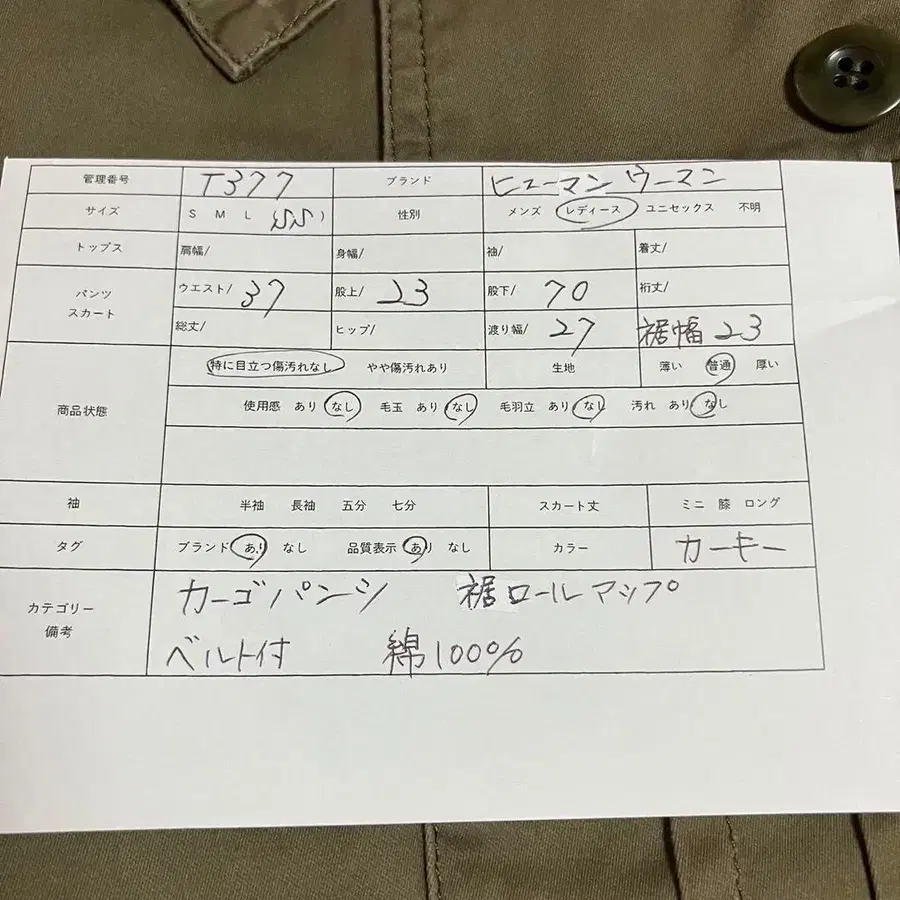 管理番号 T377 ブランド ヒューマン ウーマン
サイズ S M L (SS) 性別 メンズ レディース ユニセックス 不明
トップス 肩幅/ 身幅/ 袖/ 着丈/
パンツ スカート ウエスト/ 37 股上/ 23 股下/ 70 裄丈/
総丈/ ヒップ/ 渡り幅/ 27 裾幅 23
商品状態 特に目立つ傷汚れなし やや傷汚れあり 生地 薄い 普通 厚い
使用感 あり なし 毛玉 あり なし 毛羽立 あり なし 汚れ あり なし
袖 半袖 長袖 五分 七分 スカート丈 ミニ 膝 ロング
タグ ブランド あり なし 品質表示 あり なし カラー カーキー
カテゴリー 備考 カーゴパンツ 裾ロールマップ
ベルト付 綿100%